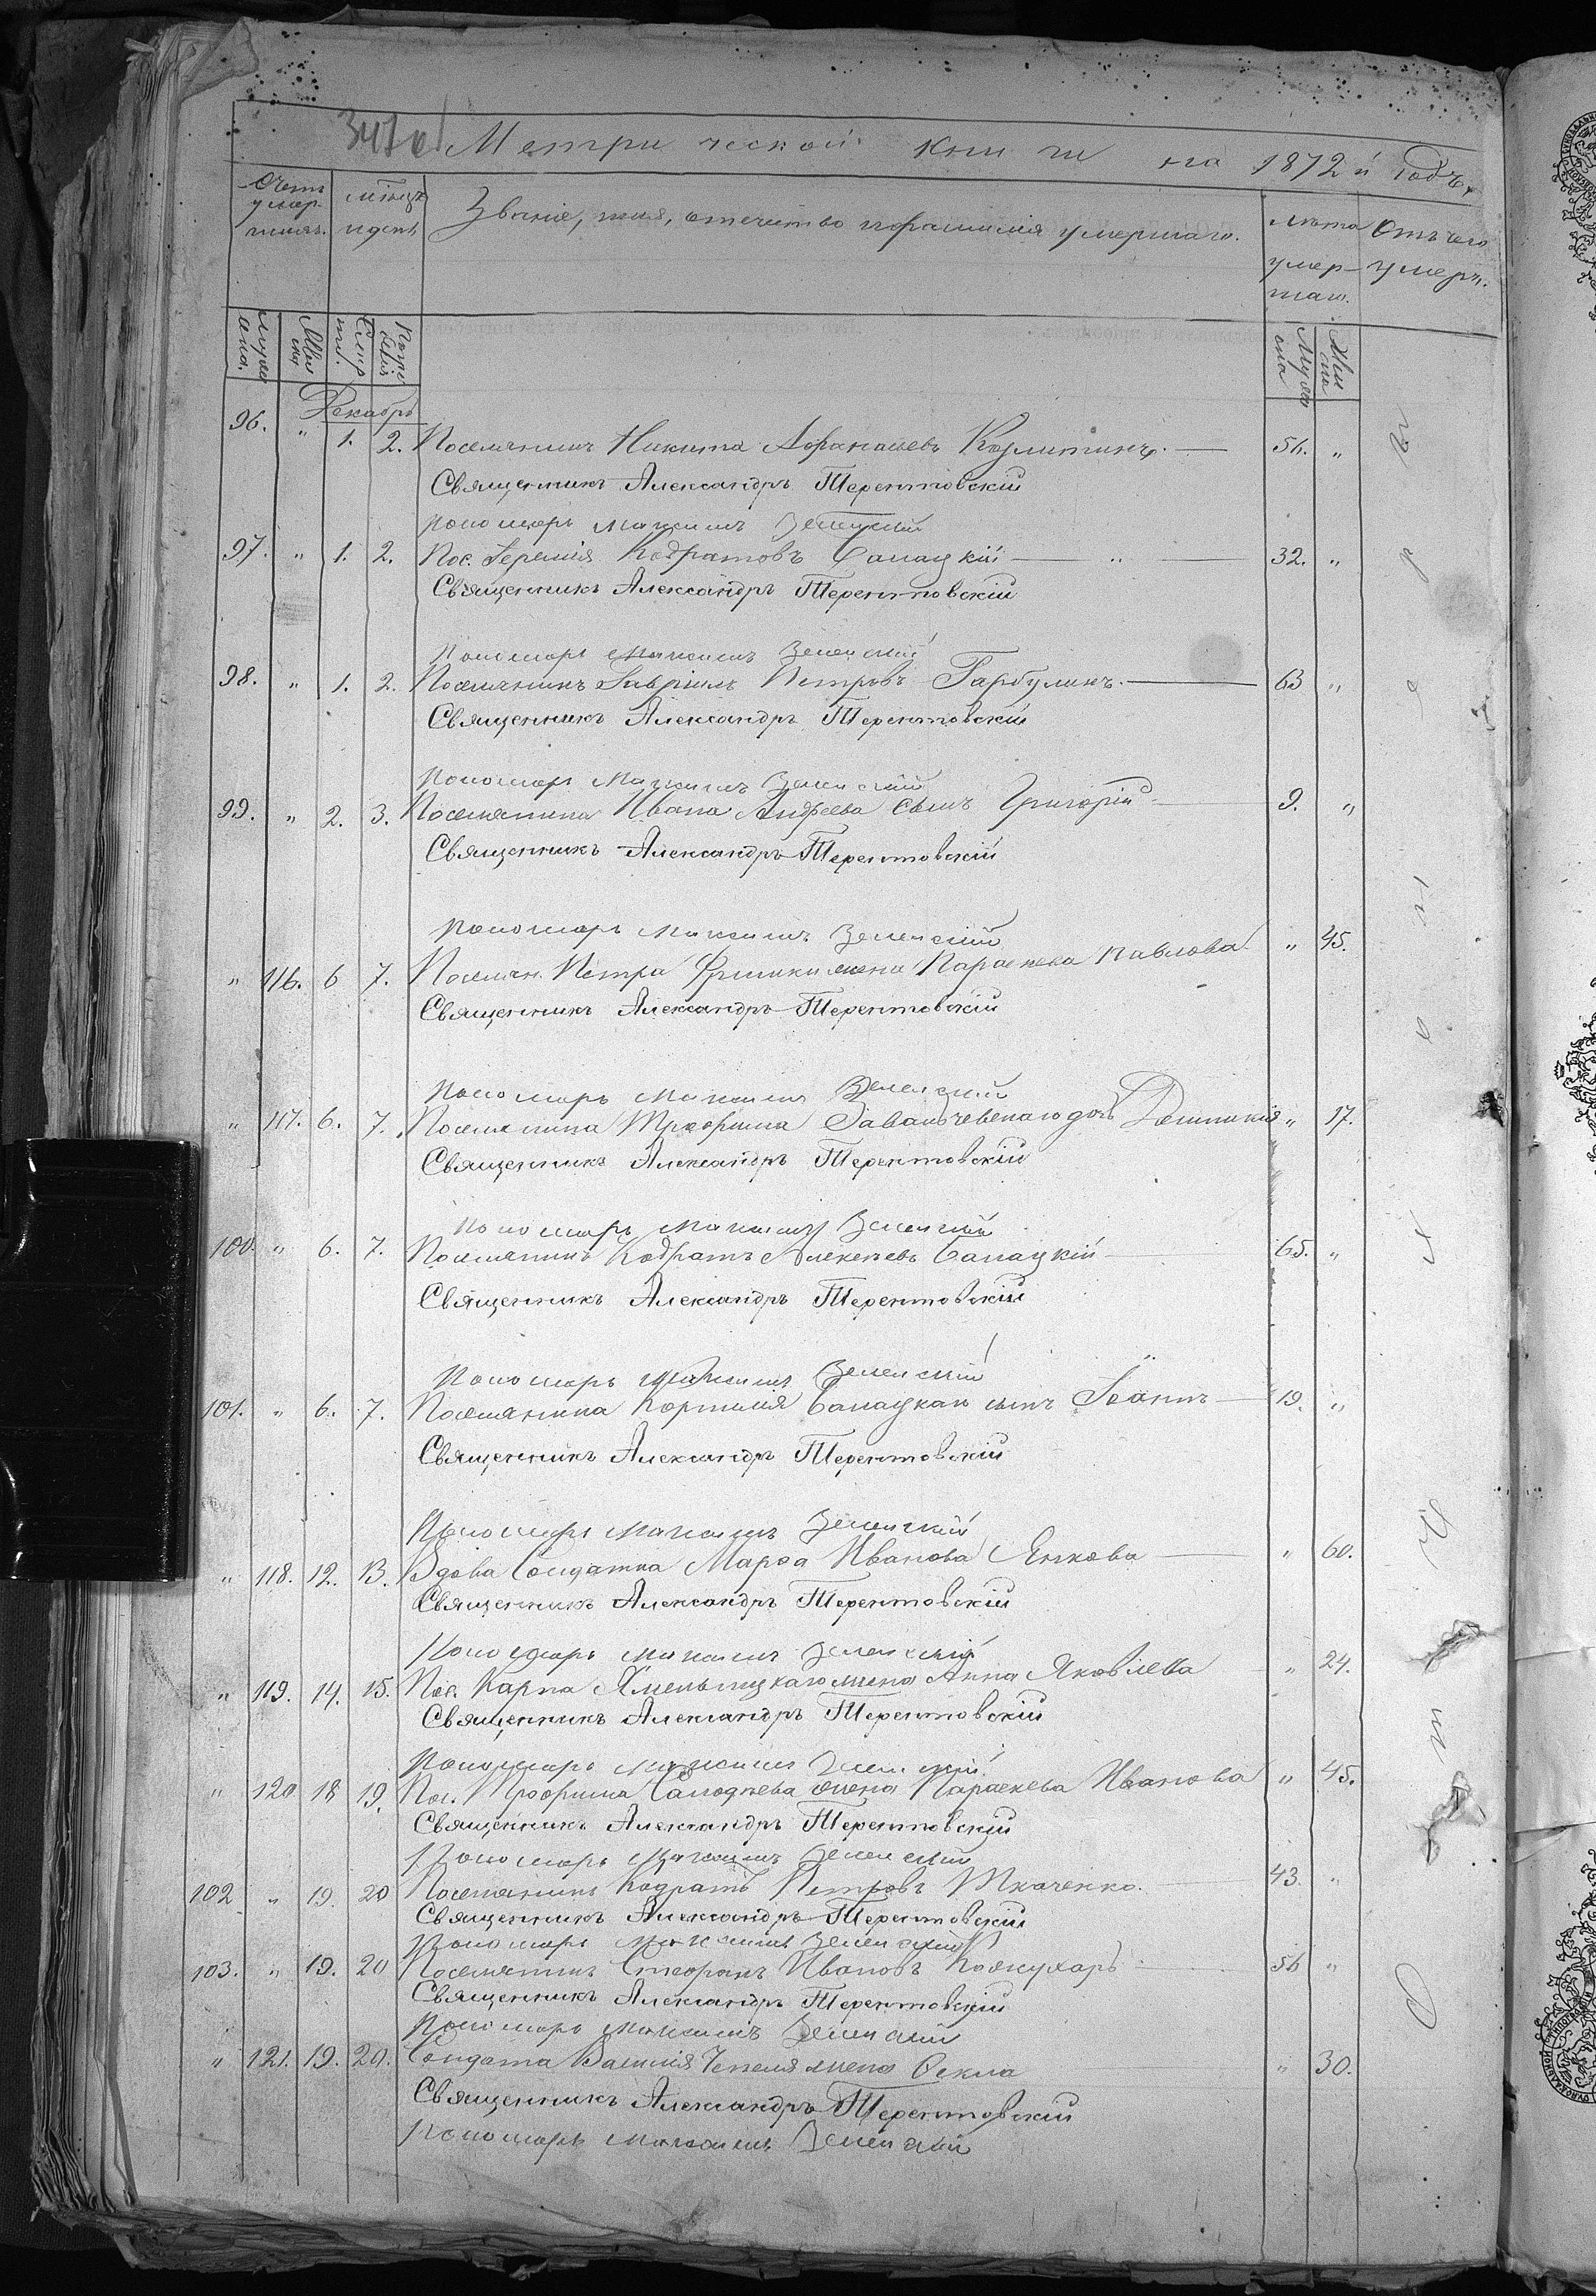 347 об
Метрической книги на 1872й Годъ.
Счетъ умершихъ.
мѣсяцъ и день
Званіе, имя, отечество и фамилія умершаго.
лѣта умершаго.
Отъ чего умеръ.
Декабрь
96. " 1. 2. Поселянинъ Никита Афанасьевъ 56. "
Священникъ Александръ Терентовскій
Пономарь Максимъ Зеленскій
97. " 1. 2. Пос. Іеремія Кодратовъ Салацкій 32. "
Священникъ Александръ Терентовскій
Пономарь Максимъ Зеленскій
98. " 1. 2. Поселянинъ Гавріилъ Петровъ Гарбулинъ. 63 "
Священникъ Александръ Терентовскій
Пономарь Максимъ Зеленскій
99. " 2. 3. Поселянина Ивана Андреева сынъ Григорій 9. "
Священникъ Александръ Терентовскій
Пономарь Максимъ Зеленскій
" 116. 6 7. Поселян. Петра жена Параскева Павлова " 45.
Священникъ Александръ Терентовскій
Пономарь Максимъ Зеленскій
" 117. 6. 7. Поселянина Трофима дочь Домникія " 17.
Священникъ Александръ Терентовскій
Пономарь Максимъ Зеленскій
100. " 6. 7. Поселянинъ Кодратъ Алексѣевъ Салацкій 65. "
Священникъ Александръ Терентовскій
Пономарь Максимъ Зеленскій
101. " 6. 7. Поселянина Корнилія Салацкаго сынъ Іоаннъ 19. "
Священникъ Александръ Терентовскій
Пономарь Максимъ Зеленскій
" 118. 12. 13. Вдова Солдатка Марѳа Иванова Янкова " 60.
Священникъ Александръ Терентовскій
Пономарь Максимъ Зеленскій
" 119. 14. 15. Пос. Карпа Хмельницкаго жена Анна Яковлева " 24.
Священникъ Александръ Терентовскій
Пономарь Максимъ Зеленскій
" 120 18 19. Пос. Трофима жена Параскева Иванова " 45.
Священникъ Александръ Терентовскій
Пономарь Максимъ Зеленскій
102 " 19. 20 Поселянинъ Кодратъ Петровъ Ткаченко. 43. "
Священникъ Александръ Терентовскій
Пономарь Максимъ Зеленскій
103. " 19. 20 Поселянинъ Стефанъ Ивановъ Кожухарь 56 "
Священникъ Александръ Терентовскій
Пономарь Максимъ Зеленскій
" 121. 19. 20. Солдата Василія Чепеля жена Ѳекла " 30.
Священникъ Александръ Терентовскій
Пономарь Максимъ Зеленскій